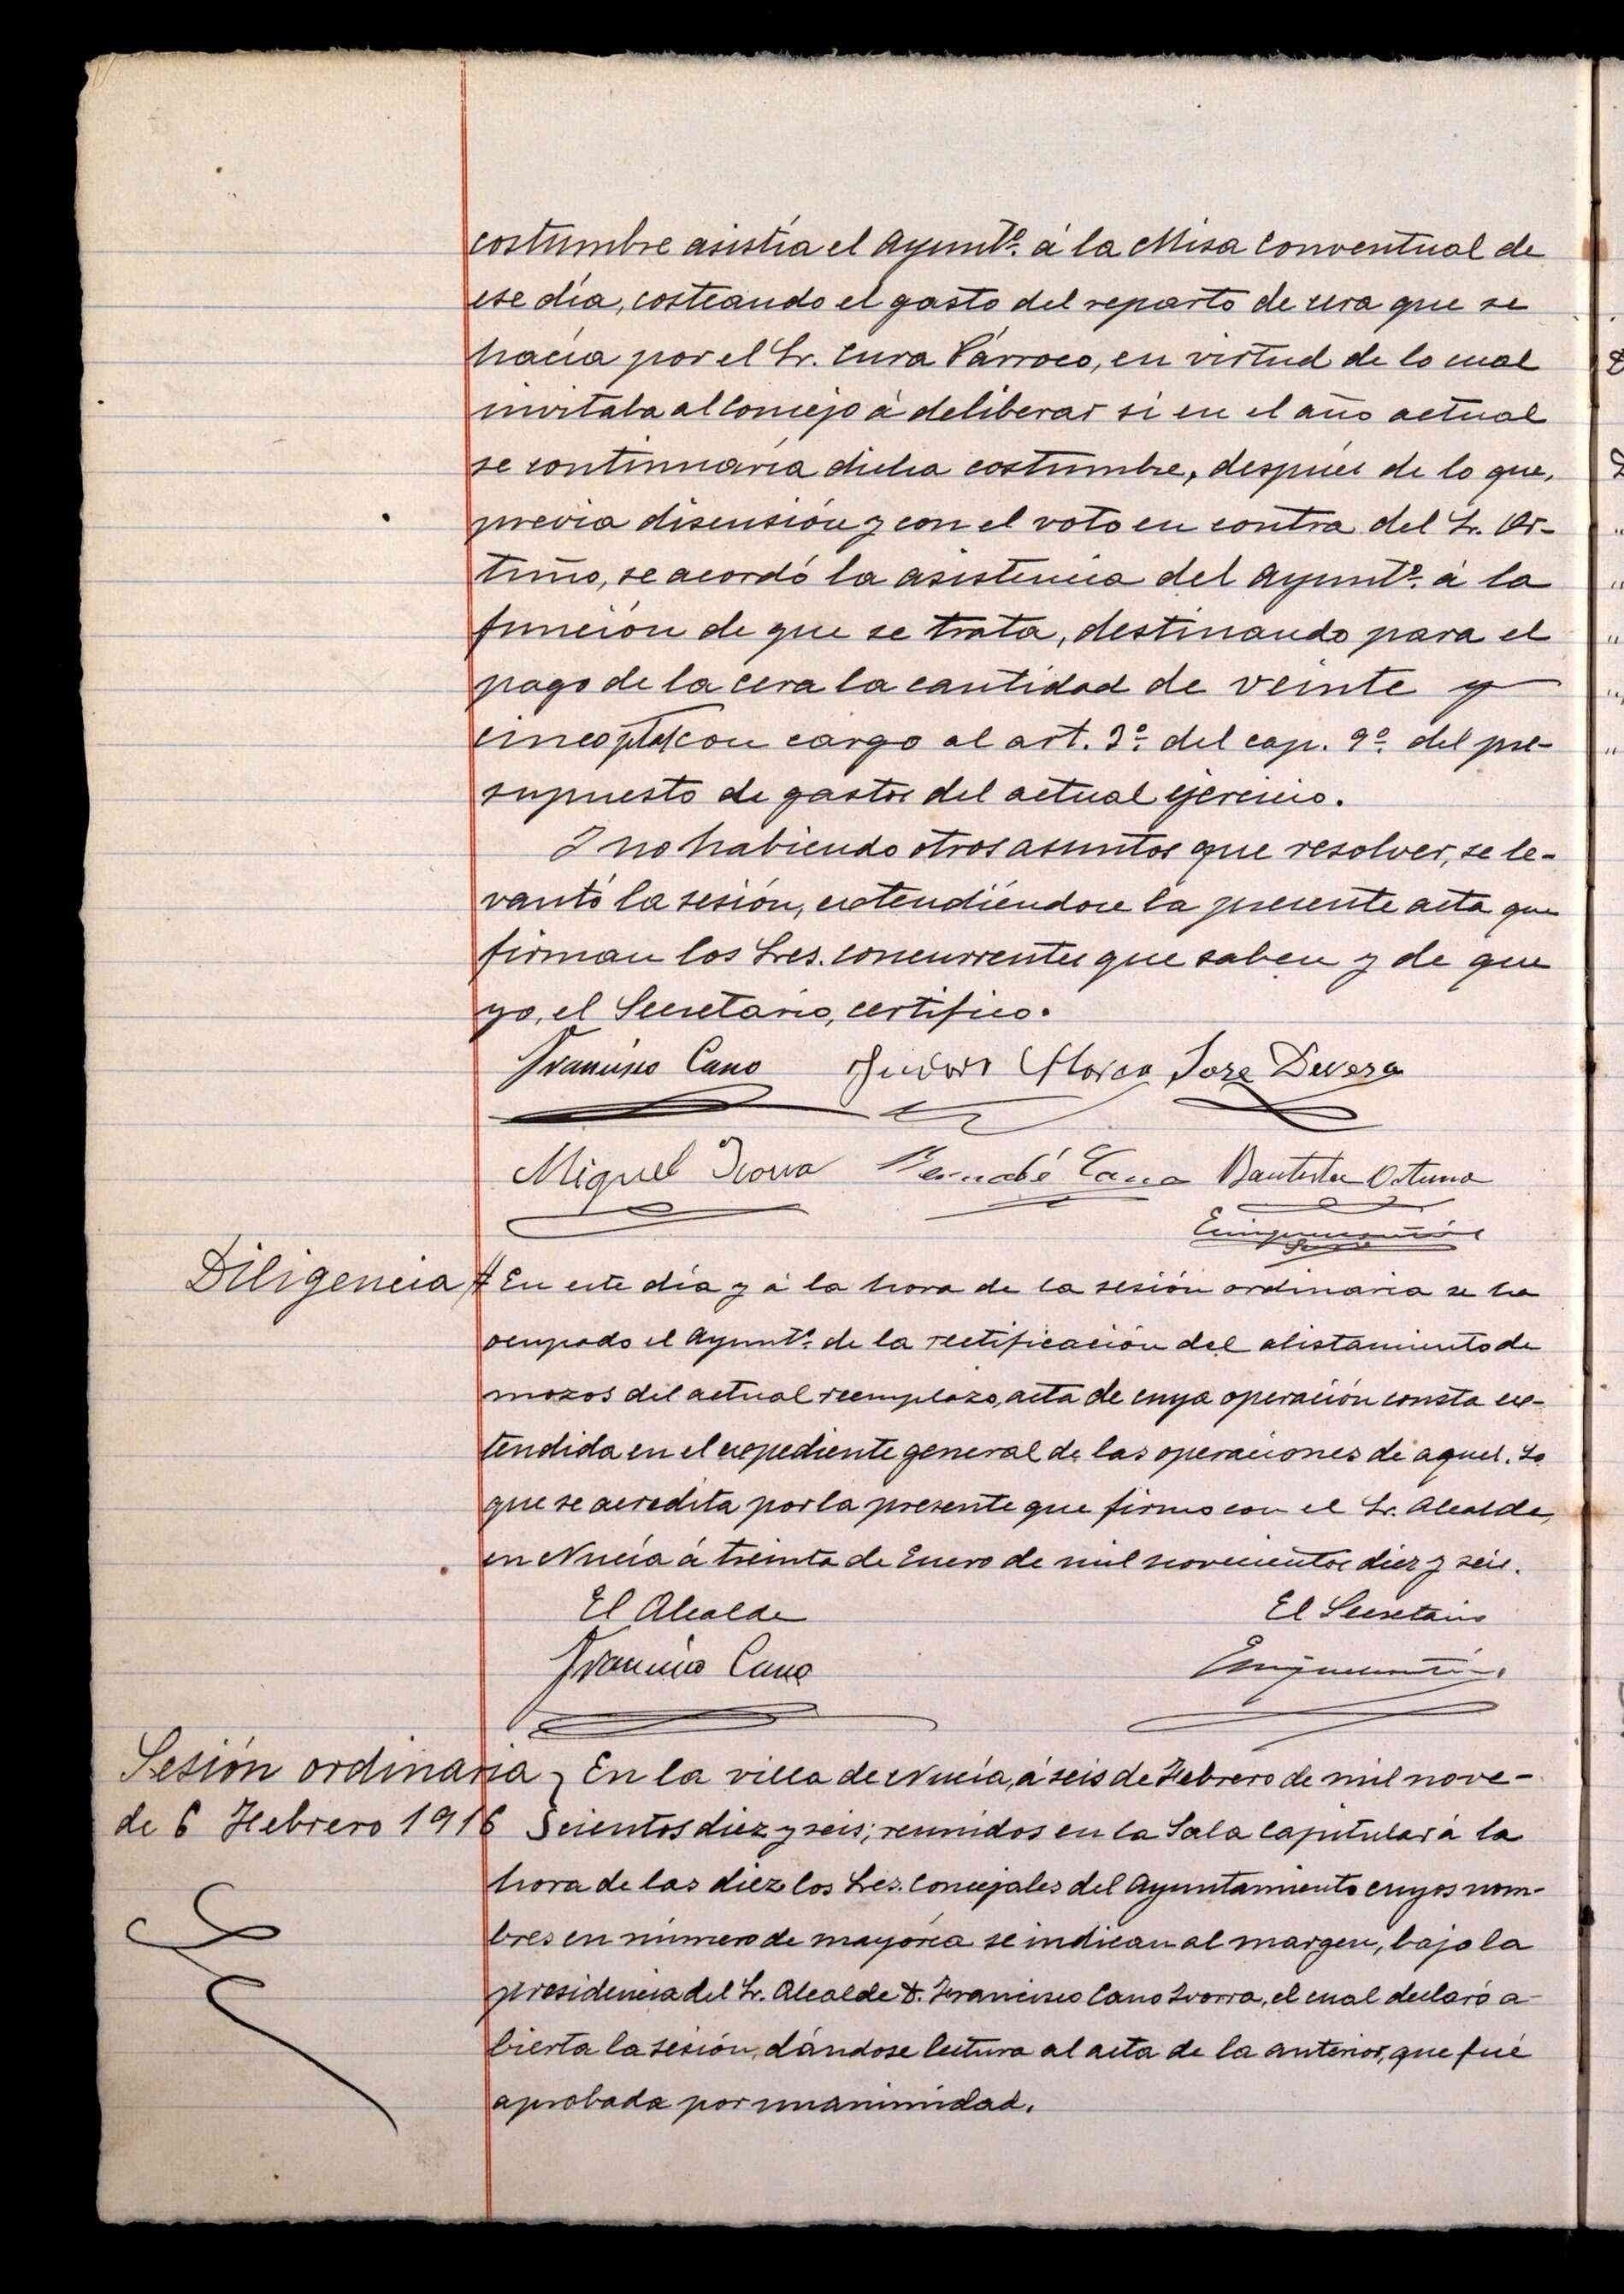 costumbre asistía el Ayuntº. á la Misa Conventual de
ese día, costeando el gasto del reparto de cera que se
hacía por el Sr. Cura Párroco, en virtud de lo cual
invitaba al Concejo á deliberar si en el año actual
se continuaría dicha costumbre, después de lo que,
previa discusión y con el voto en contra del Sr. Or-
tuño, se acordó la asistencia del Ayuntº. á la
función de que se trata, destinando para el
pago de la cera la cantidad de veinte y
cinco ptas con cargo al art. 3º. del cap. 9º. del pre-
supuesto de gastos del actual ejercicio.
Y no habiendo otros asuntos que resolver, se le-
vantó la sesión, extendiéndose la presente acta que
firman los Sres. concurrentes que saben y de que
yo, el Secretario, certifico.
Francisco Cano Llorca Jose Devesa
Miguel Ivorra Bernabé Cano Bautista Ortuno
Diligencia # En este día y á la hora de la sesión ordinaria se ha
ocupado el Ayuntº. de la rectificación del alistamiento de
mozos del actual reemplazo, acta de cuya operación consta ex-
tendida en el expediente general de las operaciones de aquel. Lo
que se acredita por la presente que firmo con el Sr. Alcalde,
en Nucía á treinta de Enero de mil novecientos diez y seis.
El Alcalde El Secretario
Francisco Cano
Sesión ordinaria } En la villa de Nucía, á seis de Febrero de mil nove-
de 6 Febrero 1916 cientos diez y seis; reunidos en la Sala Capitular á la
hora de las diez los Sres. Concejales del Ayuntamiento cuyos nom-
bres en número de mayoría se indican al margen, bajo la
presidencia del Sr. Alcalde D. Francisco Cano Ivorra, el cual declaró a-
bierta la sesión, dándose lectura al acta de la anterior, que fué
aprobada por unanimidad.